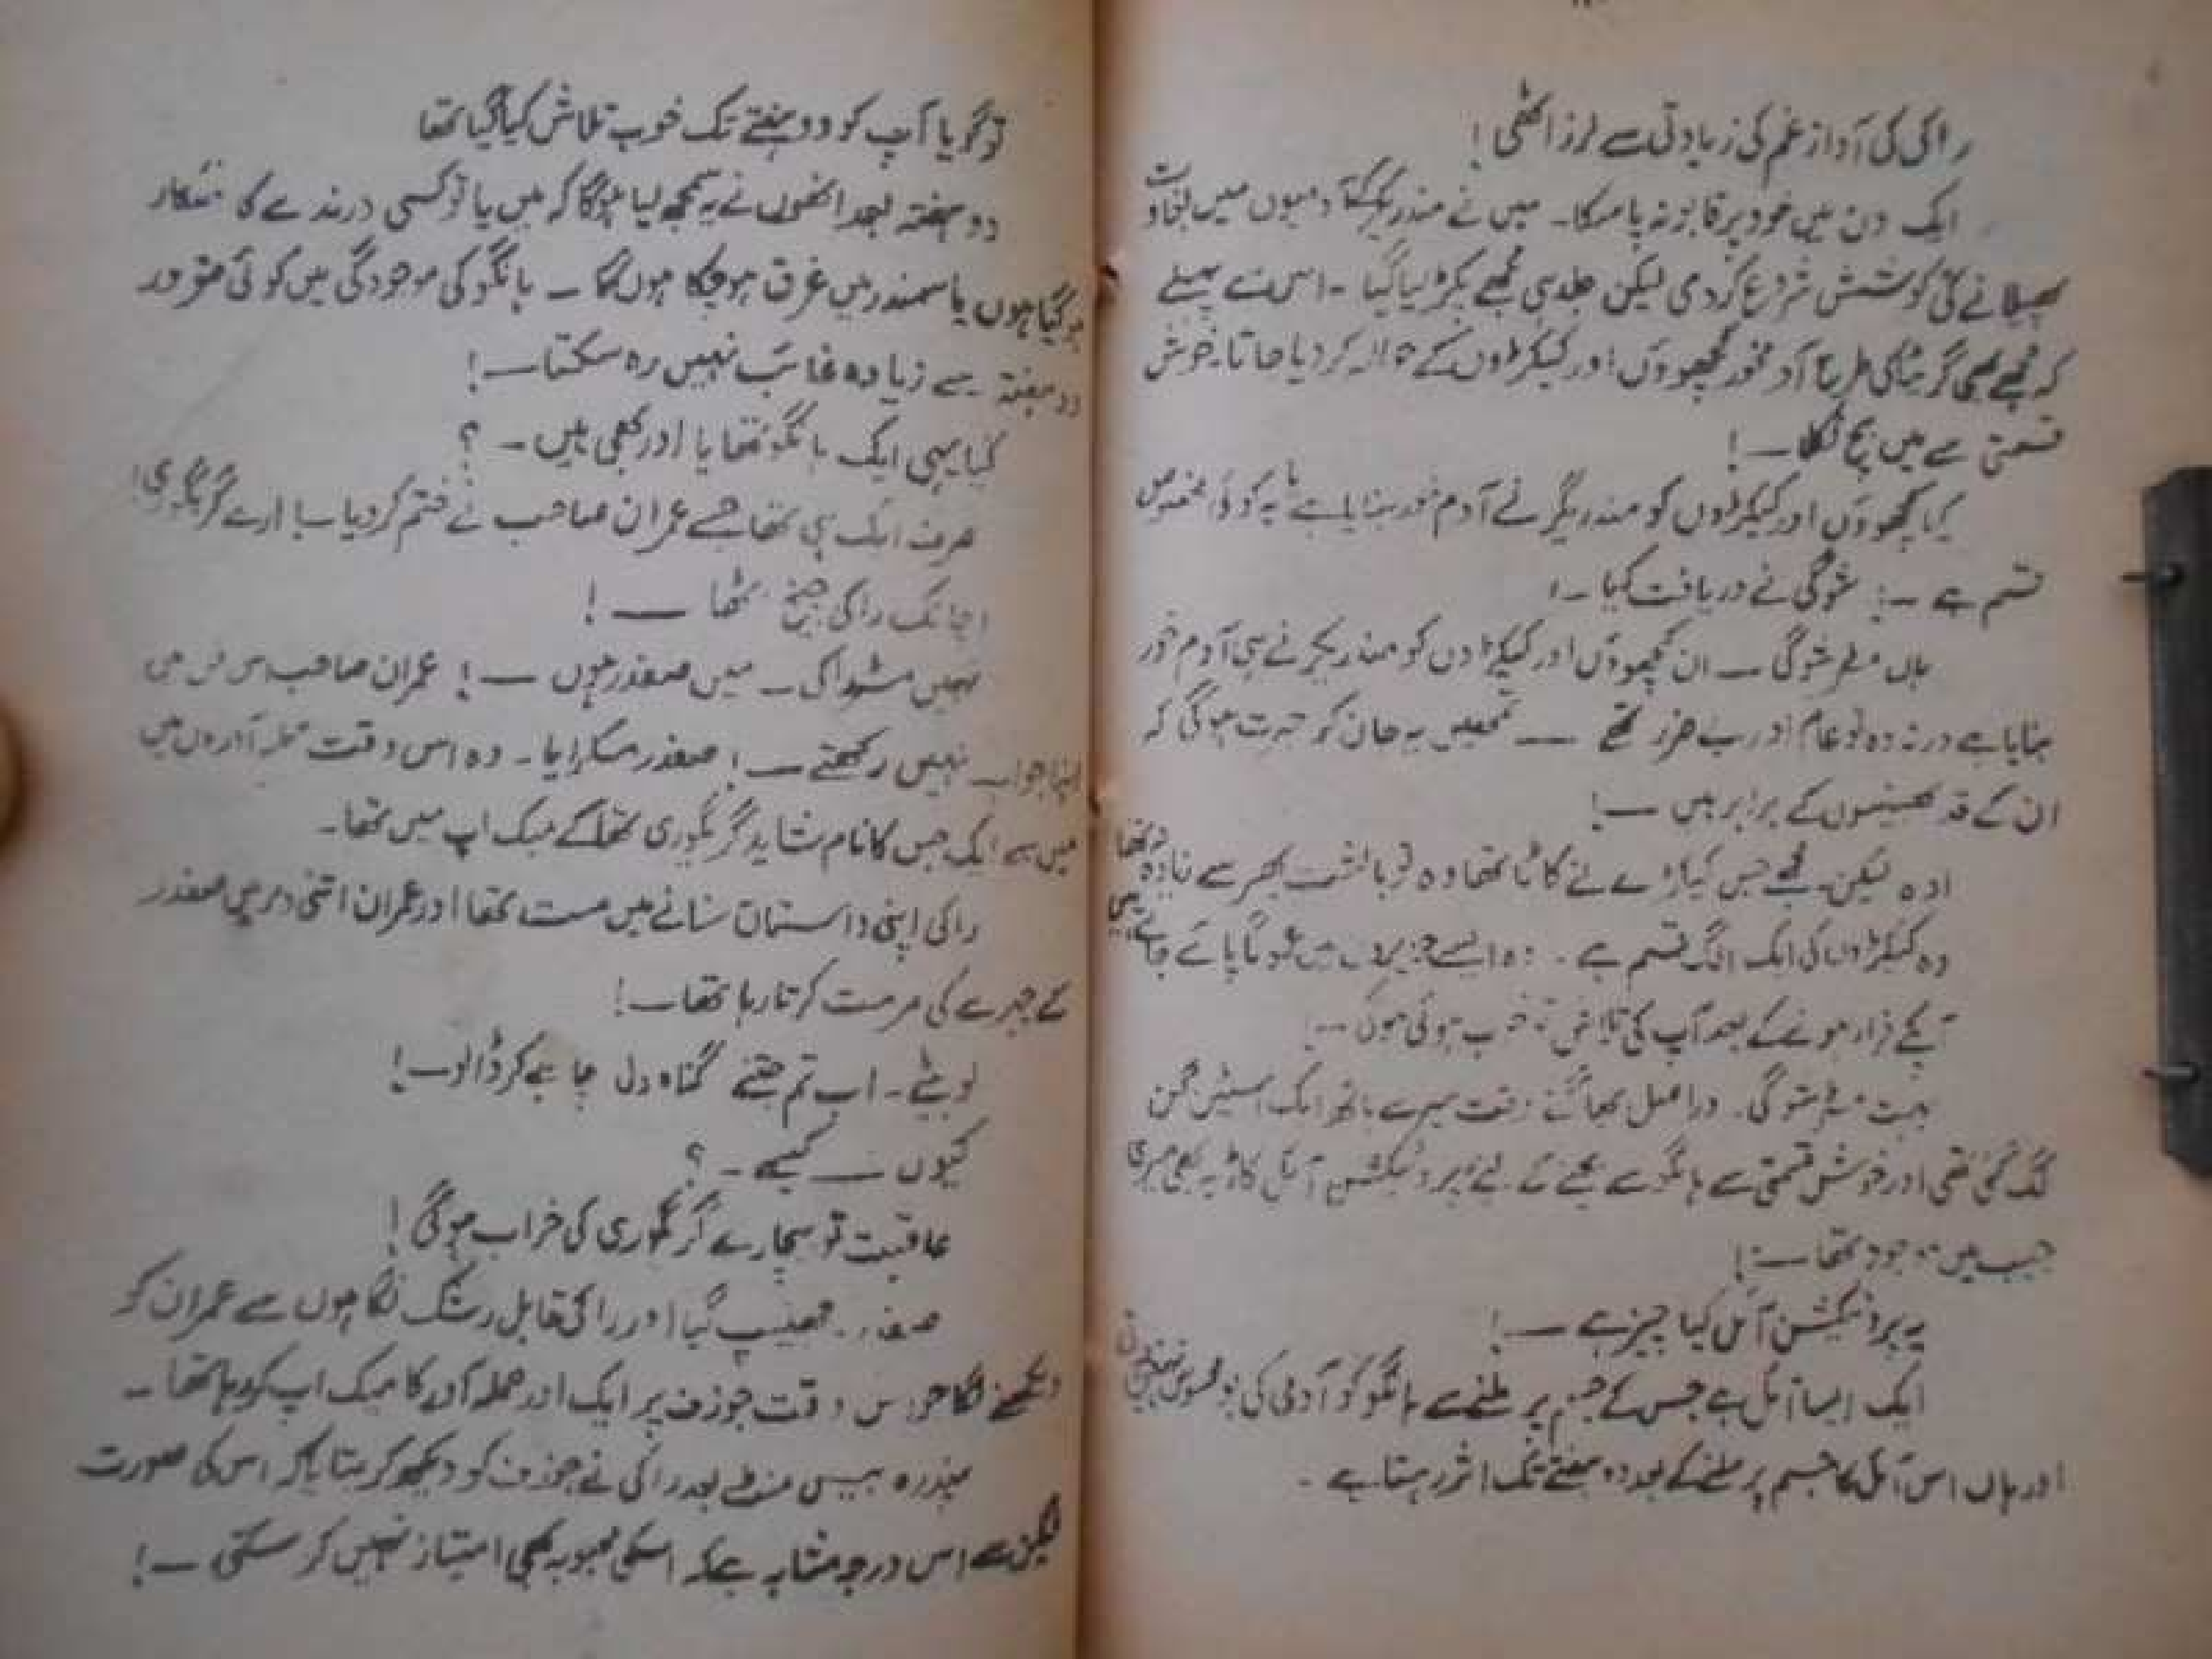 راکی کی آواز غم کی زیادتی سے لرز اٹھی!
ایک دن میں خود پر قابو نہ پا سکا۔ میں نے مندریگر کے آدمیوں میں بغاوت
پھیلانے کی کوشش شروع کر دی لیکن جلد ہی مجھے پکڑ لیا گیا۔ اس سے پہلے
کہ مجھے بھی گریٹا کی طرح آدم خور کچھوؤں اور کیکڑوں کے حوالہ کر دیا جاتا۔ خوش
قسمتی سے میں بچ نکلا۔!
کیا کچھوؤں اور کیکڑوں کو مندریگر نے آدم خور بنایا ہے یا یہ کوئی مخصوص
قسم ہے ۔؛ شوگی نے دریافت کیا۔!
ہاں مسٹر شوگی ۔ ان کچھوؤں اور کیکڑوں کو مندریگر نے ہی آدم خور
بنایا ہے ورنہ وہ تو عام اور بے ضرر تھے ۔ تمھیں یہ جان کر حیرت ہوگی کہ
ان کے قد بھینسوں کے برابر ہیں ۔!
اوہ لیکن۔ مجھے جس کیکڑے نے کاٹا تھا وہ تو بالشت بھر سے زیادہ نہ تھا
وہ کیکڑوں کی ایک الگ قسم ہے ۔ وہ ایسے جزیروں میں عموماً پائے جاتے ہیں
آپکے فرار ہونے کے بعد آپ کی تلاش تو خوب ہوئی ہوگی ۔!
بہت مسٹر شوگی۔ دراصل بھاگتے وقت میرے ہاتھ ایک اسٹین گن
لگ گئی تھی اور خوش قسمتی سے ہانگو سے بچنے کے لئے پروٹیکشن آئل کا ڈبہ بھی میری
جیب میں موجود تھا ۔!
یہ پروٹیکشن آئل کیا چیز ہے ۔!
ایک ایسا آئل ہے جس کے جسم پر ملنے سے ہانگو کو آدمی کی بو محسوس نہیں ہوتی
اور ہاں اس آئل کا جسم پر ملنے کے بعد دو ہفتے تک اثر رہتا ہے ۔
تو گویا آپ کو دو ہفتے تک خوب تلاش کیا گیا تھا
دو ہفتہ بعد انھوں نے یہ سمجھ لیا ہوگا کہ میں یا تو کسی درندے کا شکار
ہو گیا ہوں یا سمندر میں غرق ہو چکا ہوں گا ۔ ہانگو کی موجودگی میں کوئی مفرور
دو ہفتہ سے زیادہ غائب نہیں رہ سکتا۔!
کیا یہی ایک ہانگو تھا یا اور بھی ہیں ۔ ؟
صرف ایک ہی تھا جسے عمران صاحب نے ختم کر دیا۔! ارے گریگوری!
اچانک راکی چیخ اٹھا ۔!
نہیں مسٹر راکی ۔ میں صفدر ہوں ۔! عمران صاحب اس فن میں
اپنا جواب نہیں رکھتے ۔! صفدر مسکرایا۔ وہ اس وقت حملہ آوروں میں
میں سے ایک جس کا نام شاید گریگوری تھا کے میک اپ میں تھا۔
راکی اپنی داستان سنانے میں مست تھا اور عمران اتنی دیر میں صفدر
کے چہرے کی مرمت کرتا رہا تھا۔!
لو بیٹے ۔ اب تم جتنے گناہ دل چاہے کر ڈالو۔!
کیوں ۔ کیسے ۔ ؟
عاقبت تو بیچارے گریگوری کی خراب ہوگی!
صفدر جھینپ گیا اور راکی قابل رشک نگاہوں سے عمران کو
دیکھنے لگا جو اس وقت جوزف پر ایک اور حملہ آور کا میک اپ کر رہا تھا ۔
پندرہ بیس منٹ بعد راکی نے جوزف کو دیکھ کر بتایا کہ اس کی صورت
سے اس درجہ مشابہ ہے کہ اسکی محبوبہ بھی امتیاز نہیں کر سکتی ۔!